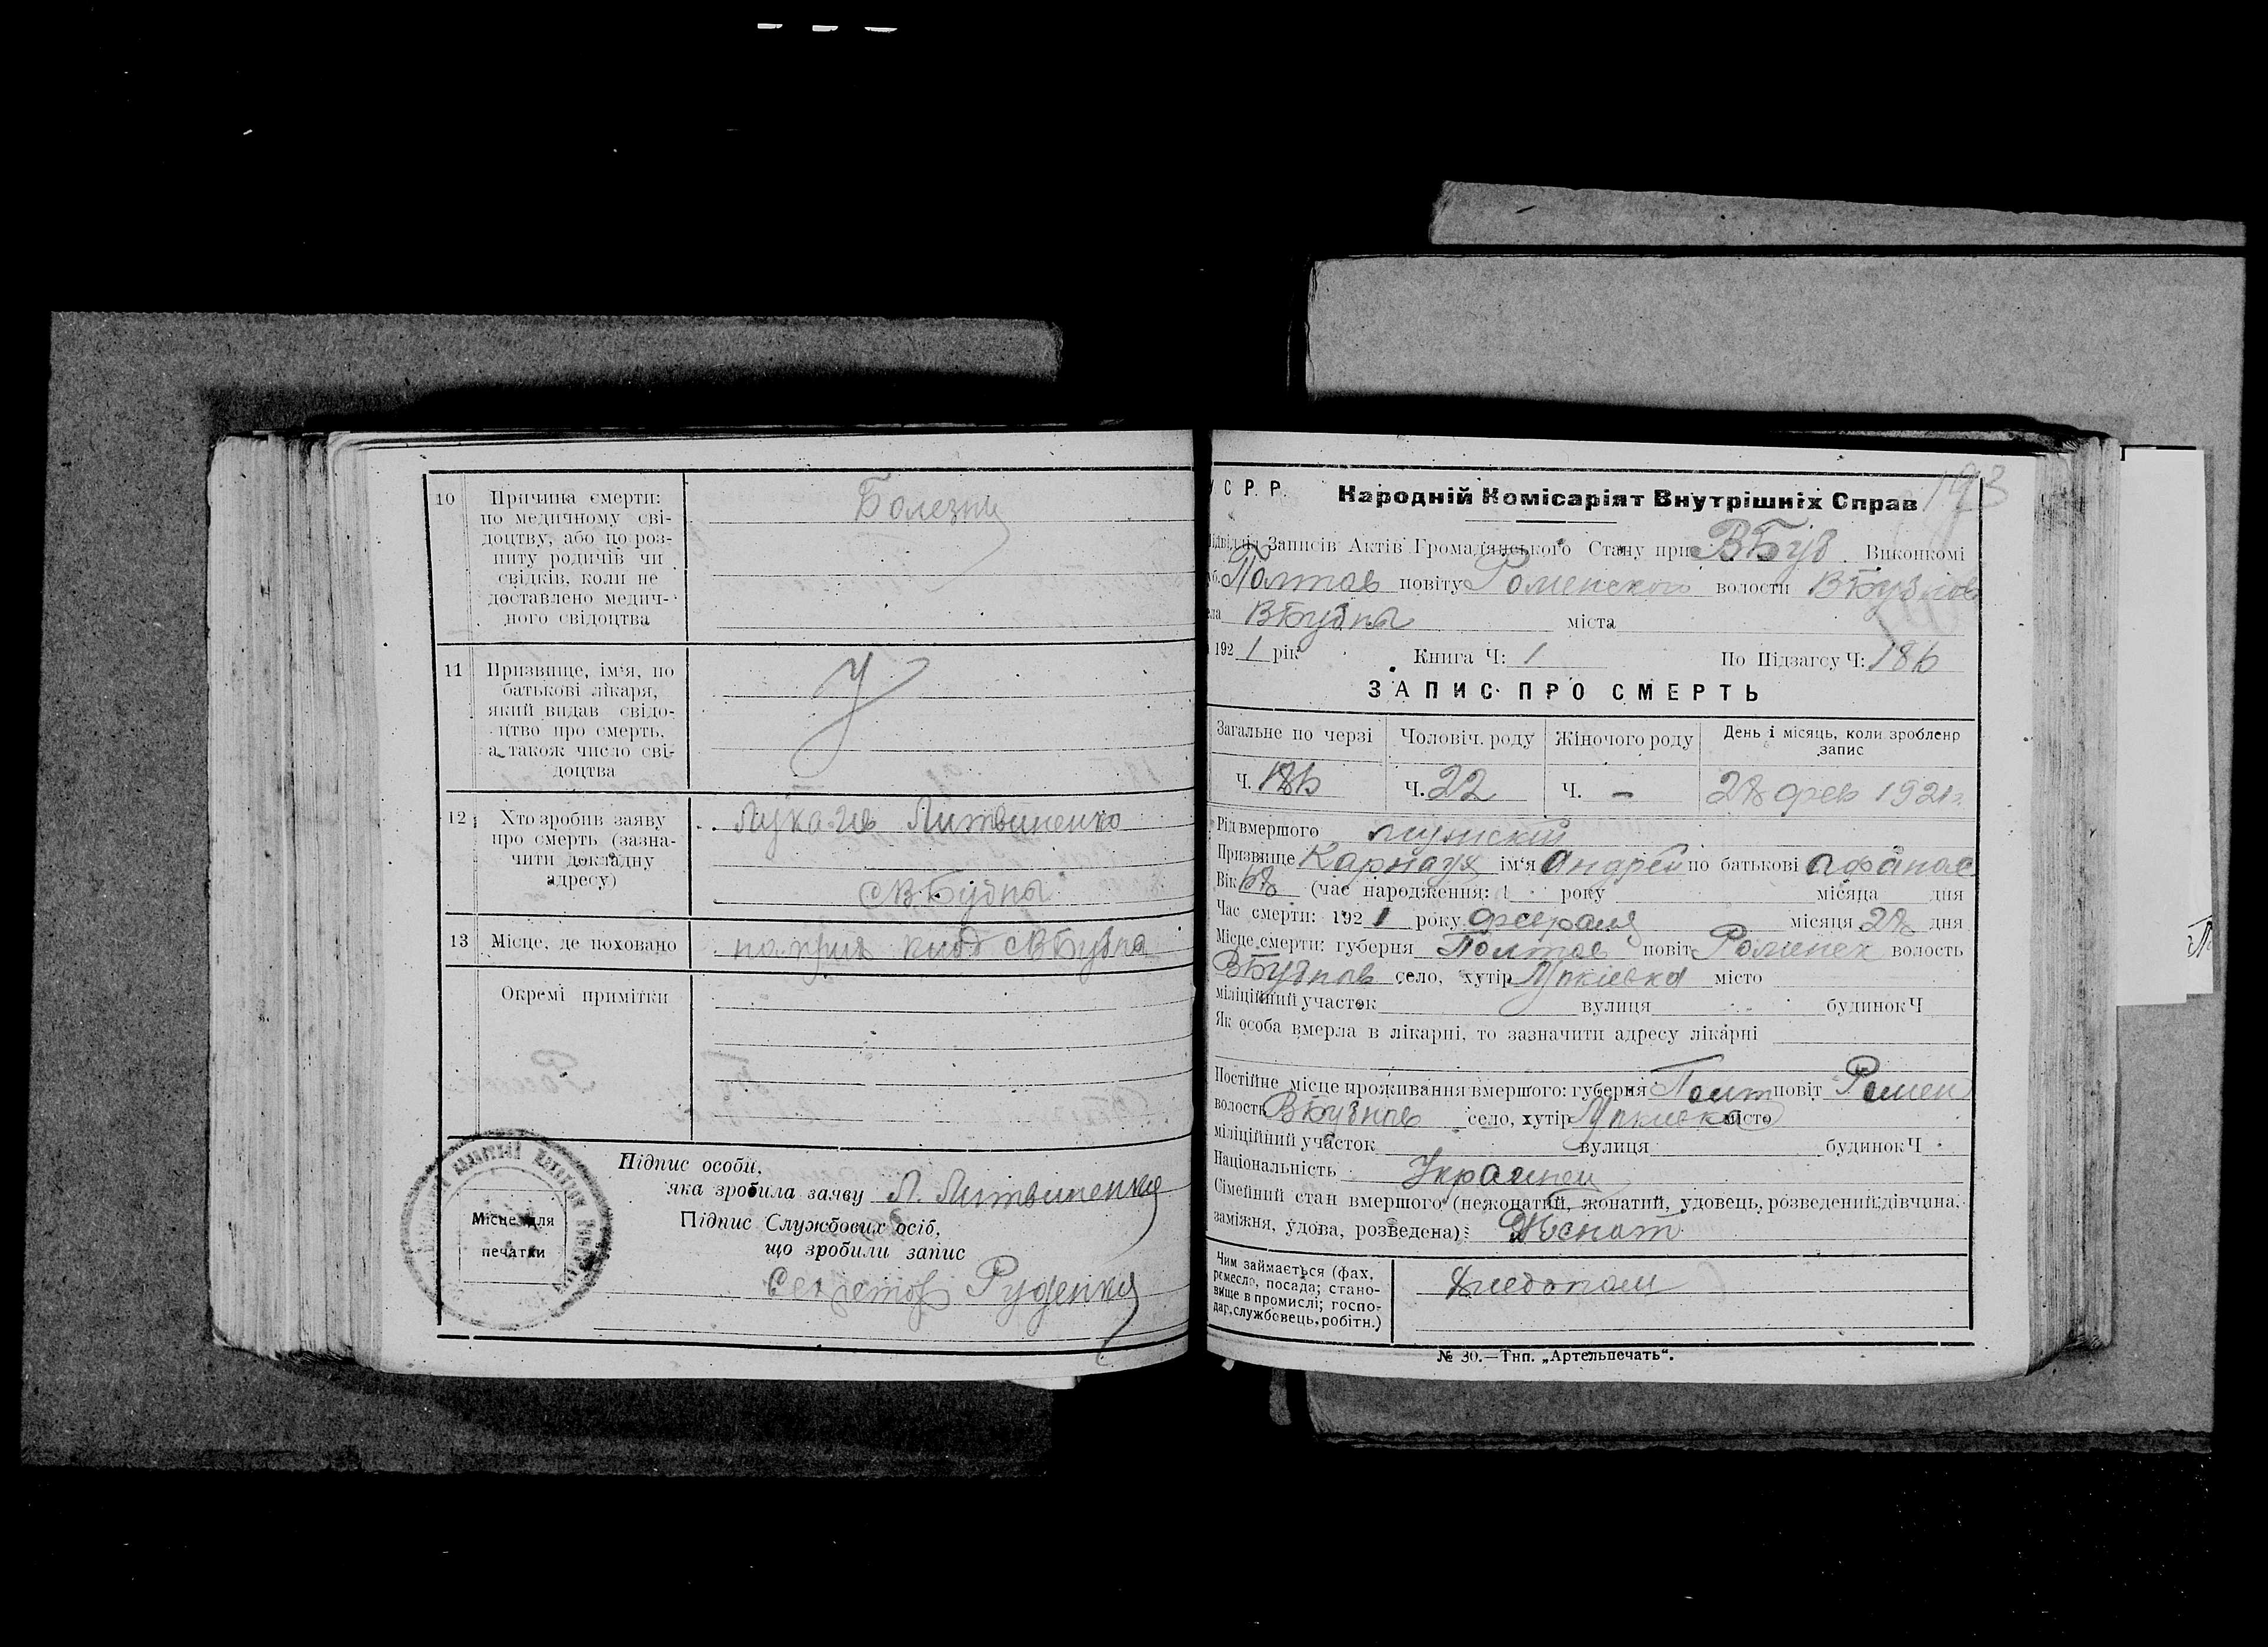 10 Причина смерти:
по медичному сві-
доцтву, або по роз-
питу родичів чи
свідків, коли не
доставлено медич-
ного свідоцтва
Болезни
11 Призвище, ім'я, по
батькові лікаря,
який видав свідо-
цтво про смерть,
а також число сві-
доцтва
12 Хто зробив заяву
про смерть (зазна-
чити докладну
адресу)
Литвиненко
с ВБубны
13 Місце, де поховано
клад с ВБубна
Окремі примітки
Місце для
печатки
Підпис особи,
яка зробила заяву Л. Литвиненко
Підпис Службових осіб,
що зробили запис
Секретарь Руденко
193
У С Р. Р. Народній Комісаріят Внутрішніх Справ
Підвідділ Записів Актів Громадянського Стану при ВБуб Виконкомі
губ. Полтав повіту Роменского волости ВБубнов
села ВБубны міста
192 1 рік Книга Ч: 1 По Підзагсу Ч: 186
ЗАПИС ПРО СМЕРТЬ
Загальне по черзі Чоловіч. роду Жіночого роду День і місяць, коли зроблено
запис
Ч. 186 Ч. 22 Ч. – 28 фев 1921 г.
Рід вмершого мужский
Призвище Карнаух ім'я Андрей по батькові Афанас
Вік 68 (час народження: 1 року місяца дня
Час смерти: 192 1 року февраля місяця 28 дня
Місце смерти: губерня Полтав повіт Роменск волость
ВБубнов село, хутір місто
міліційний участок вулиця будинок Ч
Як особа вмерла в лікарні, то зазначити адресу лікарні
Постійне місце проживання вмершого: губерня Полт повіт Ромен
волость ВБубнов село, хутір місто
міліційний участок вулиця будинок Ч
Національність Украинец
Сімейний стан вмершого (нежонатий, жонатий, удовець, розведений; дівчина,
заміжня, удова, розведена): Женат
Чим займається (фах,
ремесло, посада; стано-
вище в промислі; госпо-
дар, службовець, робітн.)
Хлебопаш
№ 30.—Тип. „Артельпечать“.